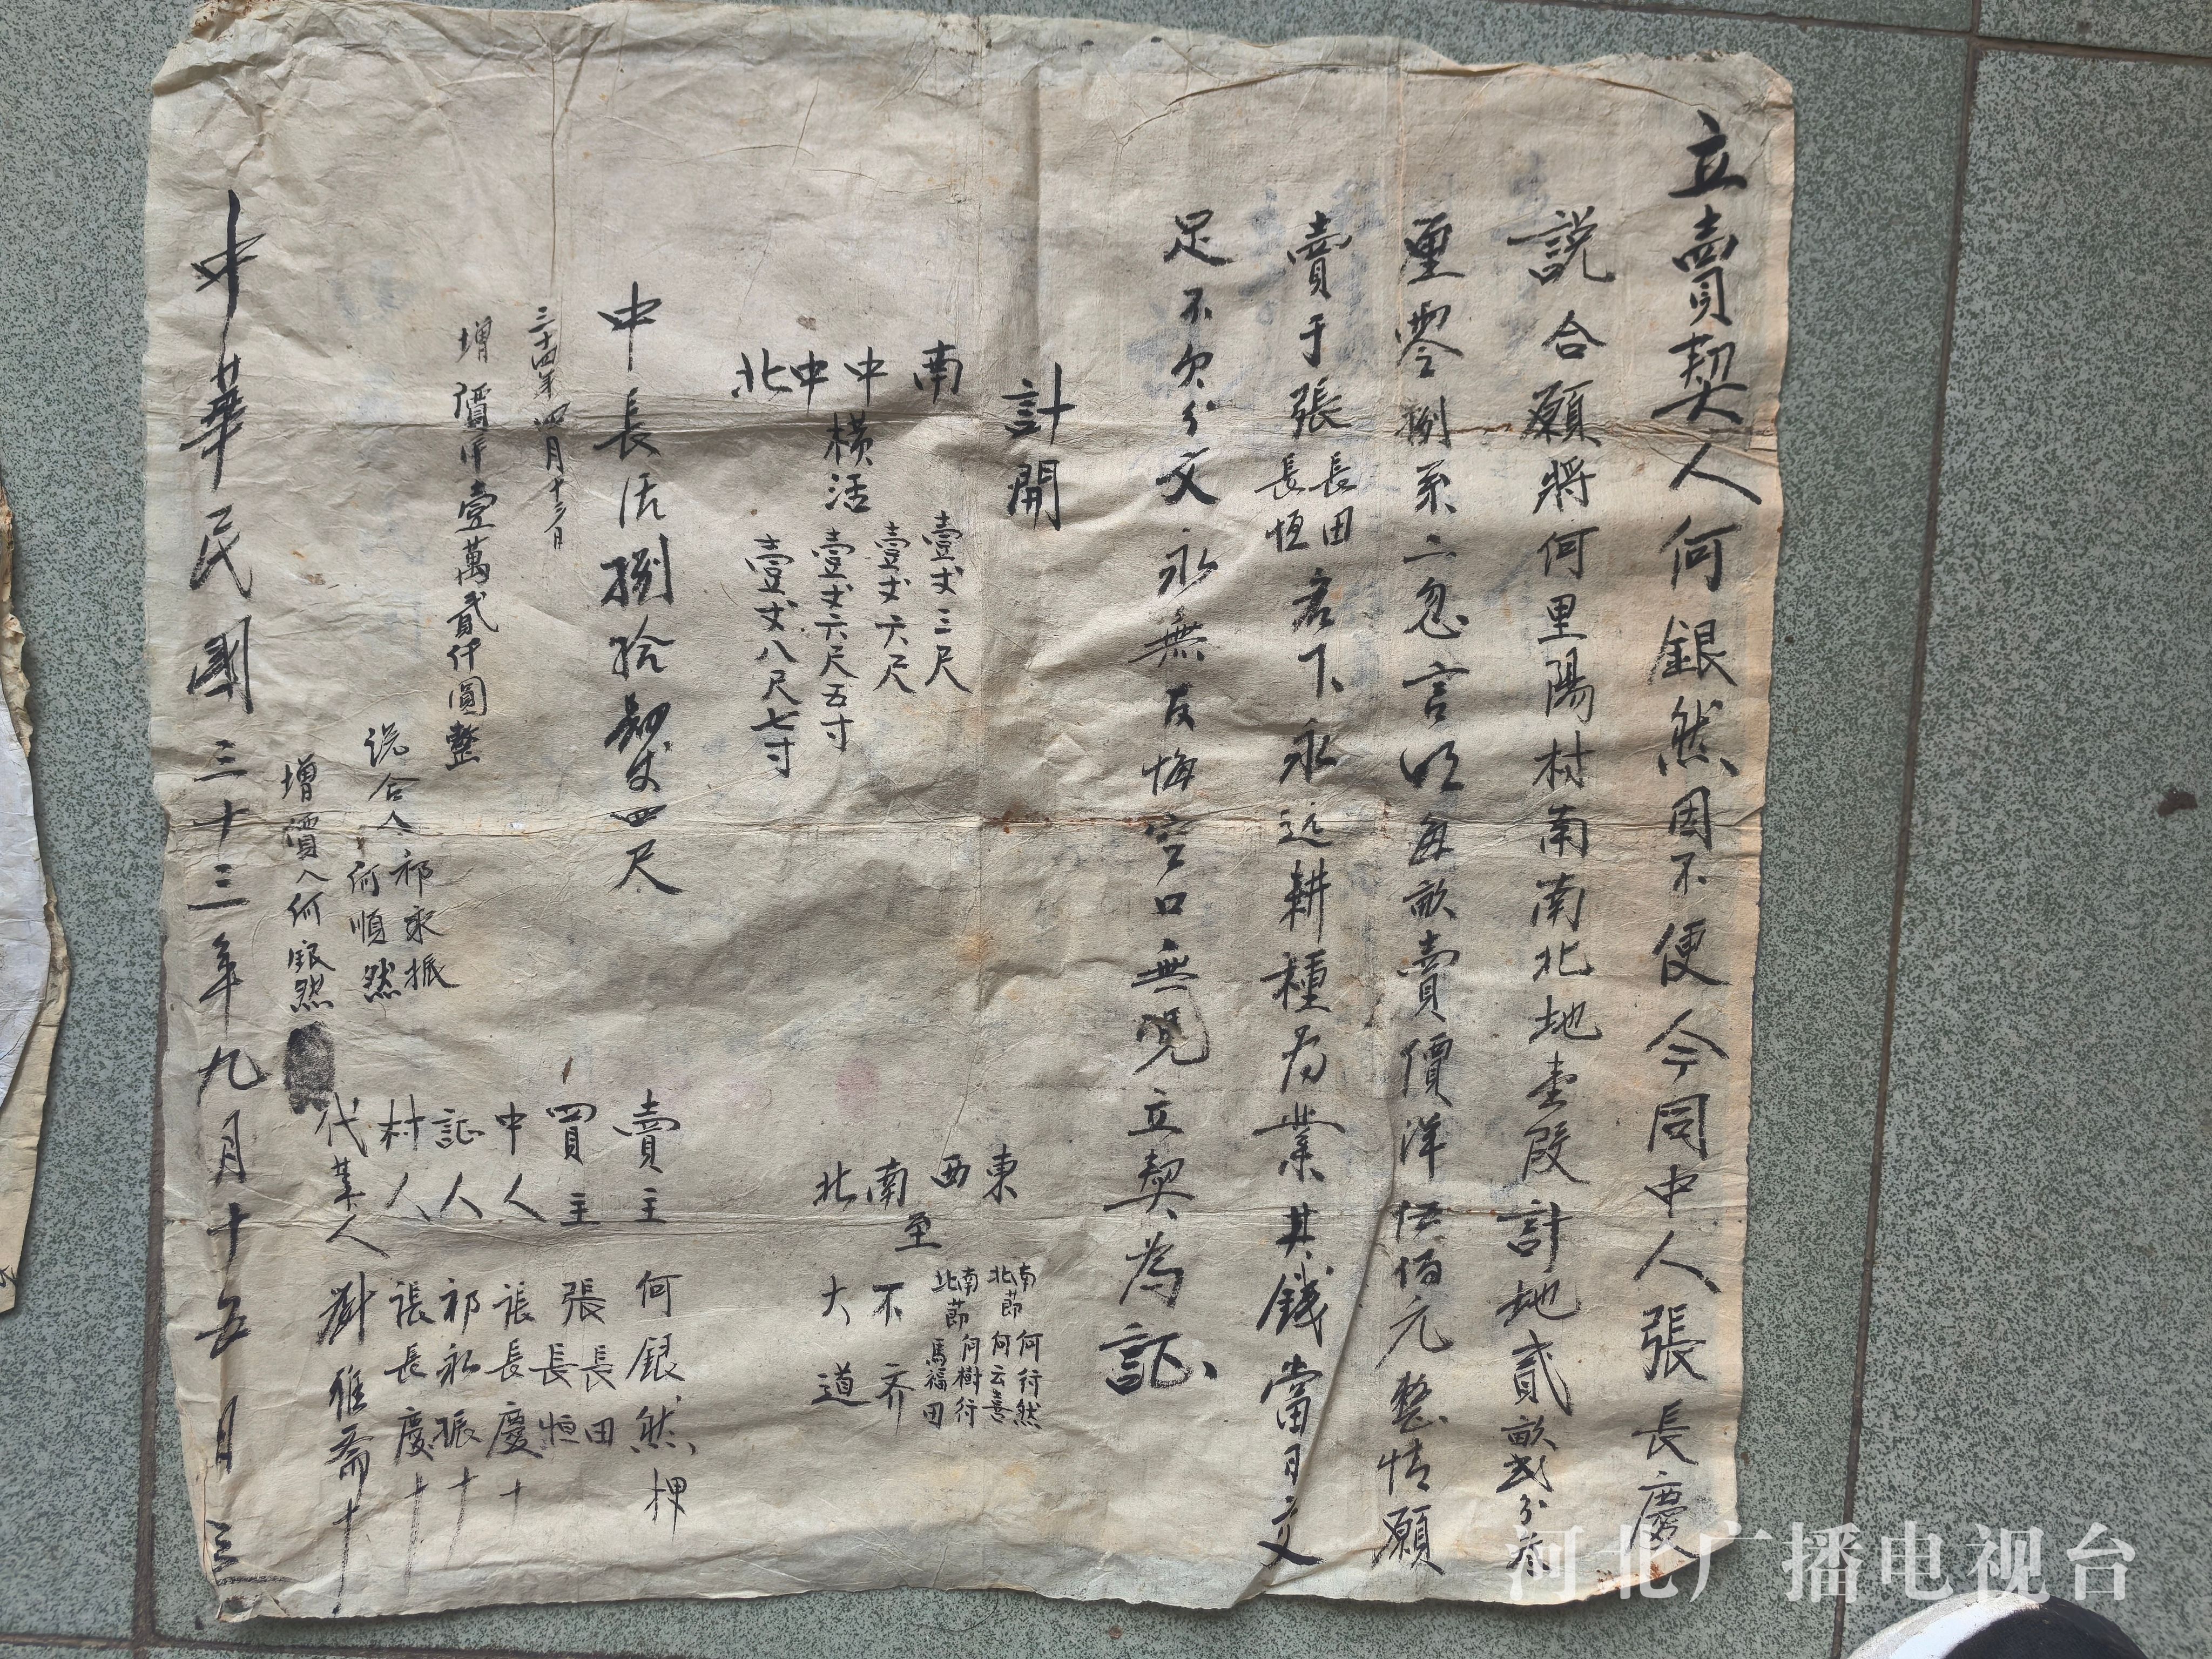 立賣契人何銀然因不便今同中人張長慶
説合願將何里陽村南南北地壹段計地貳畝弍分叁
厘零捌系二忽言明每畝賣價洋伍佰元整情願
賣于張長田長恒名下永远耕種为業其錢當日交
足不欠分文永無反悔空口無凭立契為証
計開
南 壹丈三尺
中 壹丈六尺
橫活
中 壹丈六尺五寸
北 壹丈八尺七寸
東 南節何行然 北節何云喜
西 南節何樹行 北節馬福田
至
南 不齐
北 大道
中長活捌拾丈四尺
賣主 何銀然 押
買主 張長田長恒
中人 張長慶 十
証人 祁永振 十
村人 張長慶 十
代筆人 劉雅齋 十
三十四年四月十三日
增價洋壹萬貳仟圓整
说合人 祁永振 何順然
增價人何銀然
中華民國三十三年九月十五日 立
河北广播电视台